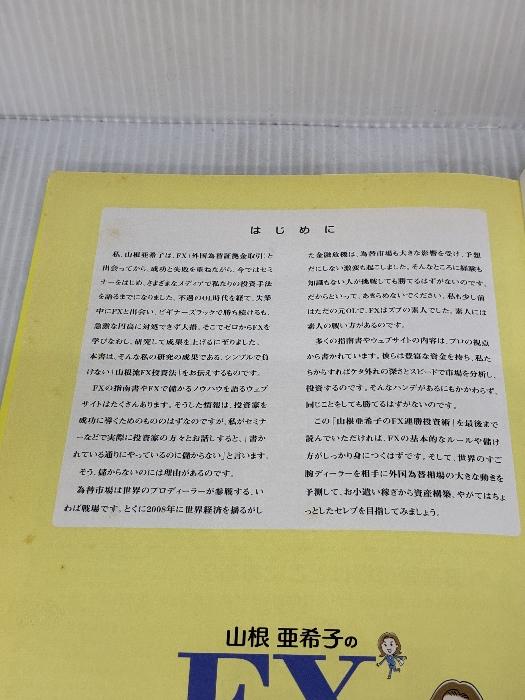 はじめに
私、山根亜希子は、FX(外国為替証拠金取引)と
出会ってから、成功と失敗を重ねながら、今ではセミ
ナーをはじめ、さまざまなメディアで私たちの投資手法
を語るまでになりました。不遇のOL時代を経て、失業
中にFXと出会い、ビギナーズラックで勝ち続けるも、
急激な円高に対処できず大損。そこでゼロからFXを
学びなおし、研究して成果を上げるに至りました。
本書は、そんな私の研究の成果である、シンプルで負
けない「山根流FX投資法」をお伝えするものです。
FXの指南書やFXで儲かるノウハウを語るウェブ
サイトはたくさんあります。そうした情報は、投資家を
成功に導くためのもののはずなのですが、私がセミナ
ーなどで実際に投資家の方々とお話しすると、「書か
れている通りにやっているのに儲からない」と言います。
そう、儲からないのには理由があるのです。
為替市場は世界のプロディーラーが参戦する、い
わば戦場です。とくに2008年に世界経済を揺るがし
た金融危機は、為替市場も大きな影響を受け、予想
だにしない激変も起こしました。そんなところに経験も
知識もない人が挑戦しても勝てるはずがないのです。
だからといって、あきらめないでください。私も少し前
はただの元OLで、FXはズブの素人でした。素人には
素人の戦い方があるのです。
多くの指南書やウェブサイトの内容は、プロの視点
から書かれています。彼らは豊富な資金を持ち、私た
ちからすればケタ外れの深さとスピードで市場を分析し、
投資するのです。そんなハンデがあるにもかかわらず、
同じことをしても勝てるはずがないのです。
この「山根亜希子のFX連勝投資術」を最後まで
読んでいただければ、FXの基本的なルールや儲け
方がしっかり身につくはずです。そして、世界のすご
腕ディーラーを相手に外国為替相場の大きな動きを
予測して、お小遣い稼ぎから資産構築、やがてはちょ
っとしたセレブを目指してみましょう。
山根 亜希子の
FX